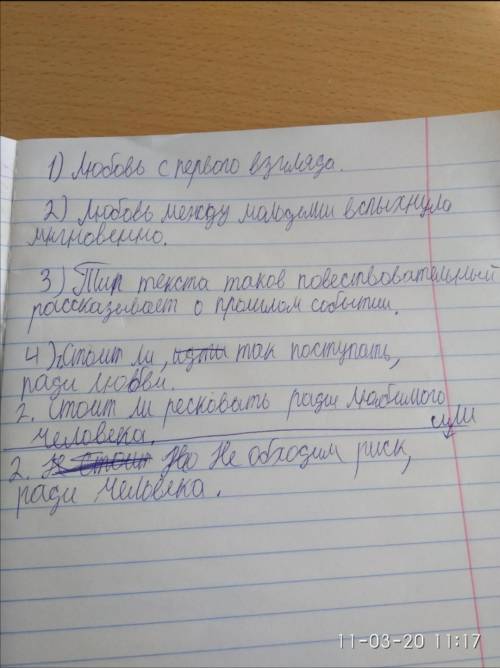 1) Любовь с первого взгляда.
2) Любовь между молодыми вспыхнула
мгновенно.
3) Тип текста таков повествовательный
рассказывает о прошлом событии.
4) 1. Стоит ли, идти так поступать,
ради любви.
2. Стоит ли рисковать ради любимого
человека.
или
2. Не стоит Но не обходим риск,
ради человека.
11-03-20 11:17